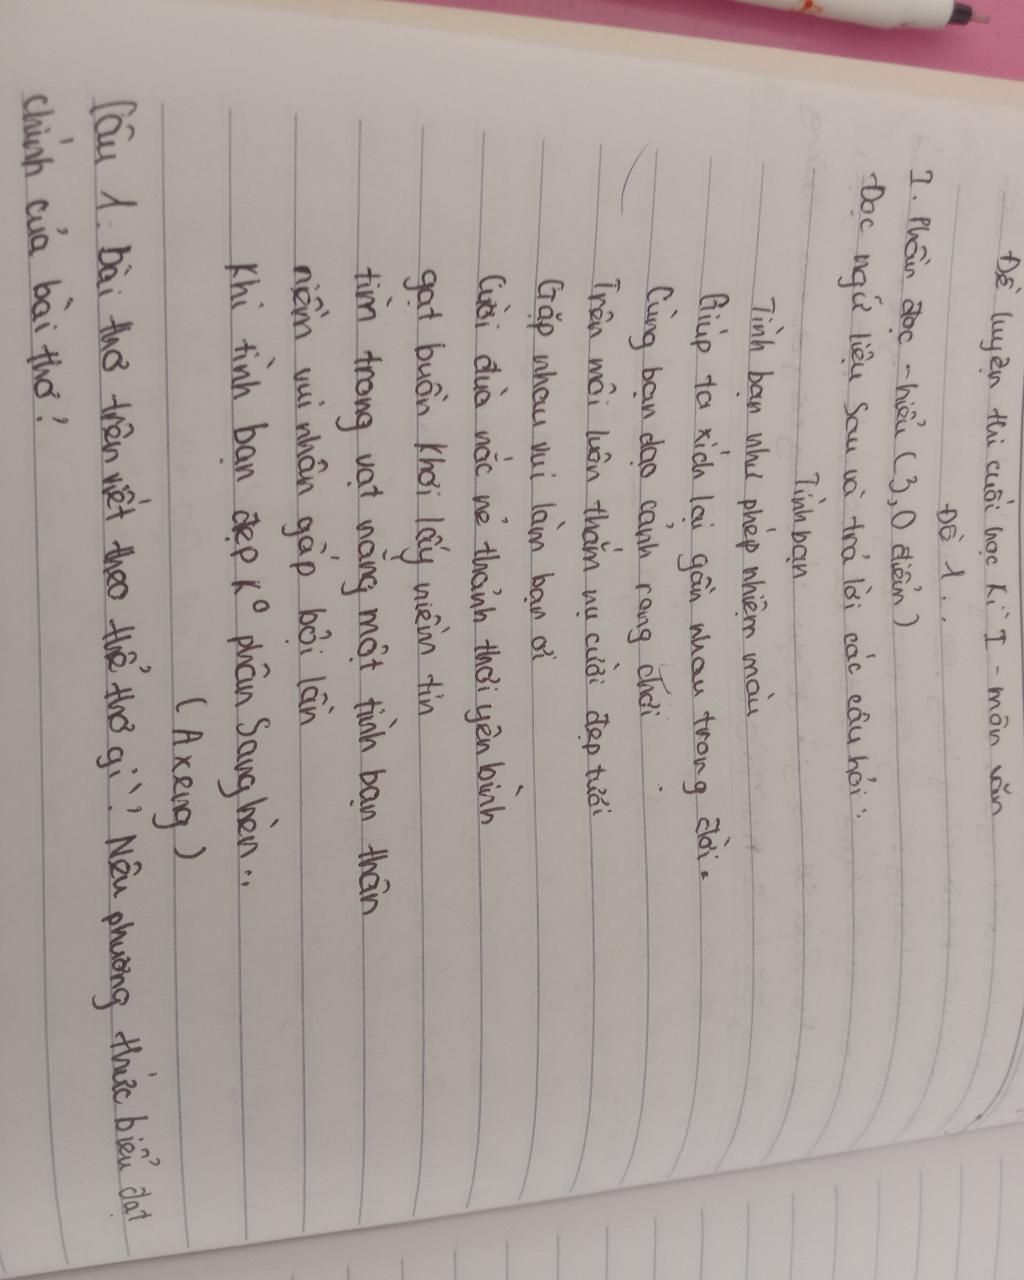 Đề luyện thi cuối học kì I - môn văn
Đề 1:
I. Phần đọc - hiểu (3,0 điểm)
Đọc ngữ liệu sau và trả lời các câu hỏi:
Tình bạn
Tình bạn như phép nhiệm màu
Giúp ta xích lại gần nhau trong đời.
Cùng bạn dạo cảnh rong chơi
Trên môi luôn thắm nụ cười đẹp tươi
Gặp nhau vui lắm bạn ơi
Cười đùa nắc nẻ thảnh thơi yên bình
gạt buồn khơi lấy niềm tin
tìm trong vạt nắng một tình bạn thân
niềm vui nhân gấp bội lần
Khi tình bạn đẹp k⁰ phân sang hèn..
(Axeng)
Câu 1: bài thơ trên viết theo thể thơ gì? Nêu phương thức biểu đạt
chính của bài thơ?